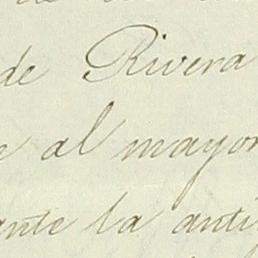 de Rivera
e al mayor
ante la anti